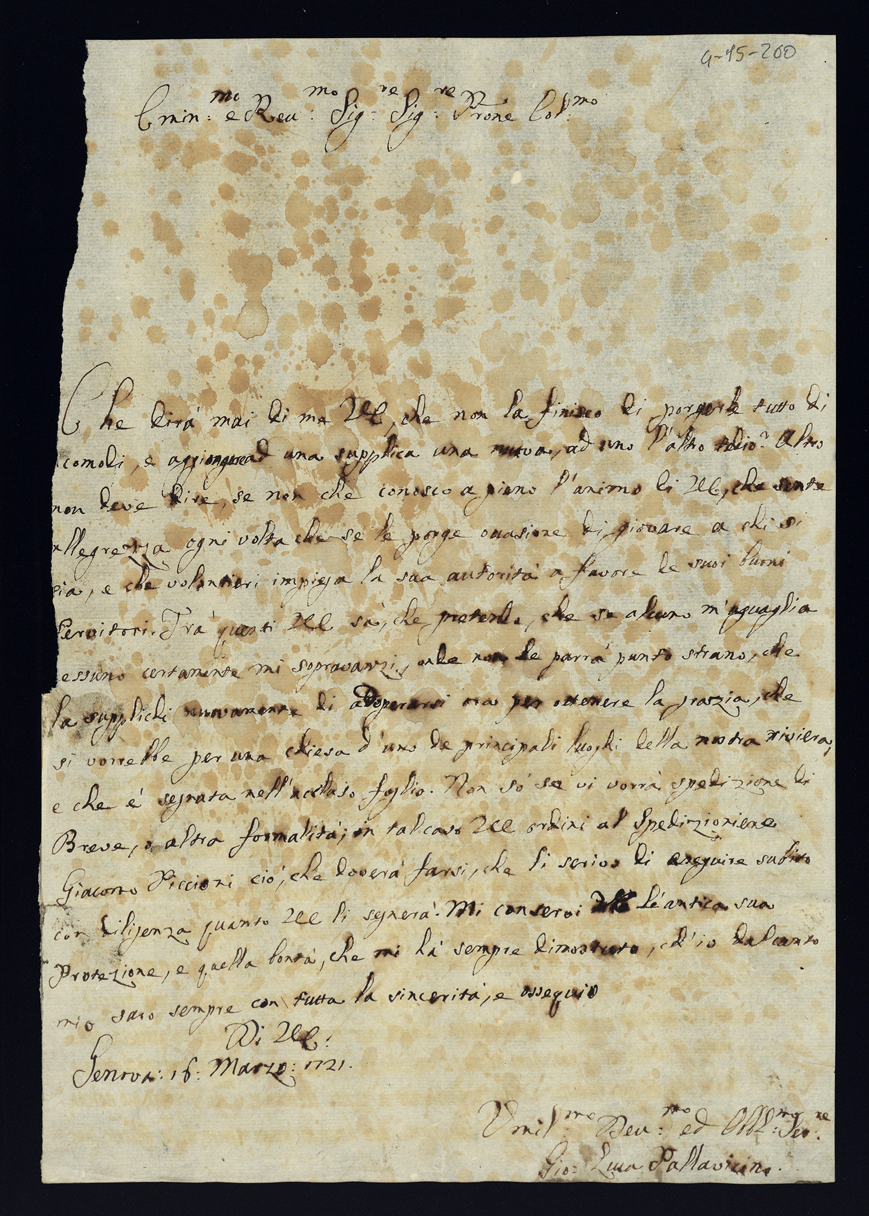 G-15-200
Emin:mo e Reu:mo Sig:re Sig:re Prone Col:mo
Che dirà mai di me VE, che non la finisco di porgerle tutto di
comodi, e aggiongere ad una supplica una nuova, ad uno l'altro tedio? Altro
non deve dire, se non che conosco a pieno l'animo di VE, che sente
allegrezza ogni volta che se le porge ocasione di giovare a chi si
sia, e che volentieri impiega la sua autorità a favore de suoi buoni
Servitori. Trà questi VE sà, che pretendo, che se alcuno m'aguaglia
essuno certamente mi sopravanzi, onde non le parrà punto strano, che
la supplichi nuovamente di adoperarsi ora per ottenere la grazia, che
si vorrebbe per una chiesa d'uno de principali luoghi della nostra riviera,
e che é segnata nell'acluso foglio. Non sò se vi vorrà spedizione di
Breve, o altra formalità; in tal caso VE ordini al Spedizioniere
Giacomo Piccioni ciò, che doverà farsi, che li scrivo di eseguire subito
con diligenza quanto VE li segnerà. Mi conservi l'antica sua
Protezione, e quella bontà, che mi hà sempre dimostrato, ed io dal canto
mio sarò sempre con tutta la sincerità, e ossequio
Di VE:
Genova: 16: Marzo: 1721.
Umil:mo Deu:mo ed Obbl:mo Ser:re
Gio: Luca Pallavicino.